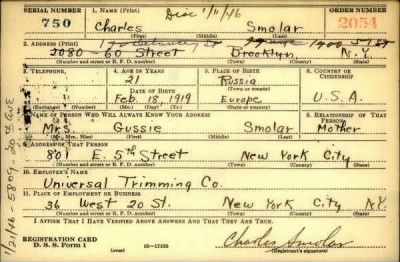 SERIAL NUMBER
1. NAME (Print)
Disc 1/11/46
ORDER NUMBER
750
Charles Smolar
2054
(First) (Middle) (Last)
2. ADDRESS (Print)
2080-60 Street Brooklyn N.Y.
(Number and street or R. F. D. number) (Town) (County) (State)
3. TELEPHONE
4. AGE IN YEARS
21
5. PLACE OF BIRTH
Russia
6. COUNTRY OF CITIZENSHIP
DATE OF BIRTH
Feb. 18, 1919
(Town or county)
Europe
U.S.A.
(Exchange) (Number)
(Mo.) (Day) (Yr.)
(State or country)
7. NAME OF PERSON WHO WILL ALWAYS KNOW YOUR ADDRESS
8. RELATIONSHIP OF THAT PERSON
Mrs. Gussie Smolar Mother
(Mr., Mrs., Miss) (First) (Middle) (Last)
9. ADDRESS OF THAT PERSON
801 E. 5th Street New York City
(Number and street or R. F. D. number) (Town) (County) (State)
10. EMPLOYER'S NAME
Universal Trimming Co.
11. PLACE OF EMPLOYMENT OR BUSINESS
36 West 20 St. New York City N.Y.
(Number and street or R. F. D. number) (Town) (County) (State)
I AFFIRM THAT I HAVE VERIFIED ABOVE ANSWERS AND THAT THEY ARE TRUE.
REGISTRATION CARD
D. S. S. Form 1
(over)
16-17105
Charles Smolar
(Registrant's signature)
1/21/46-5809-20th Ave